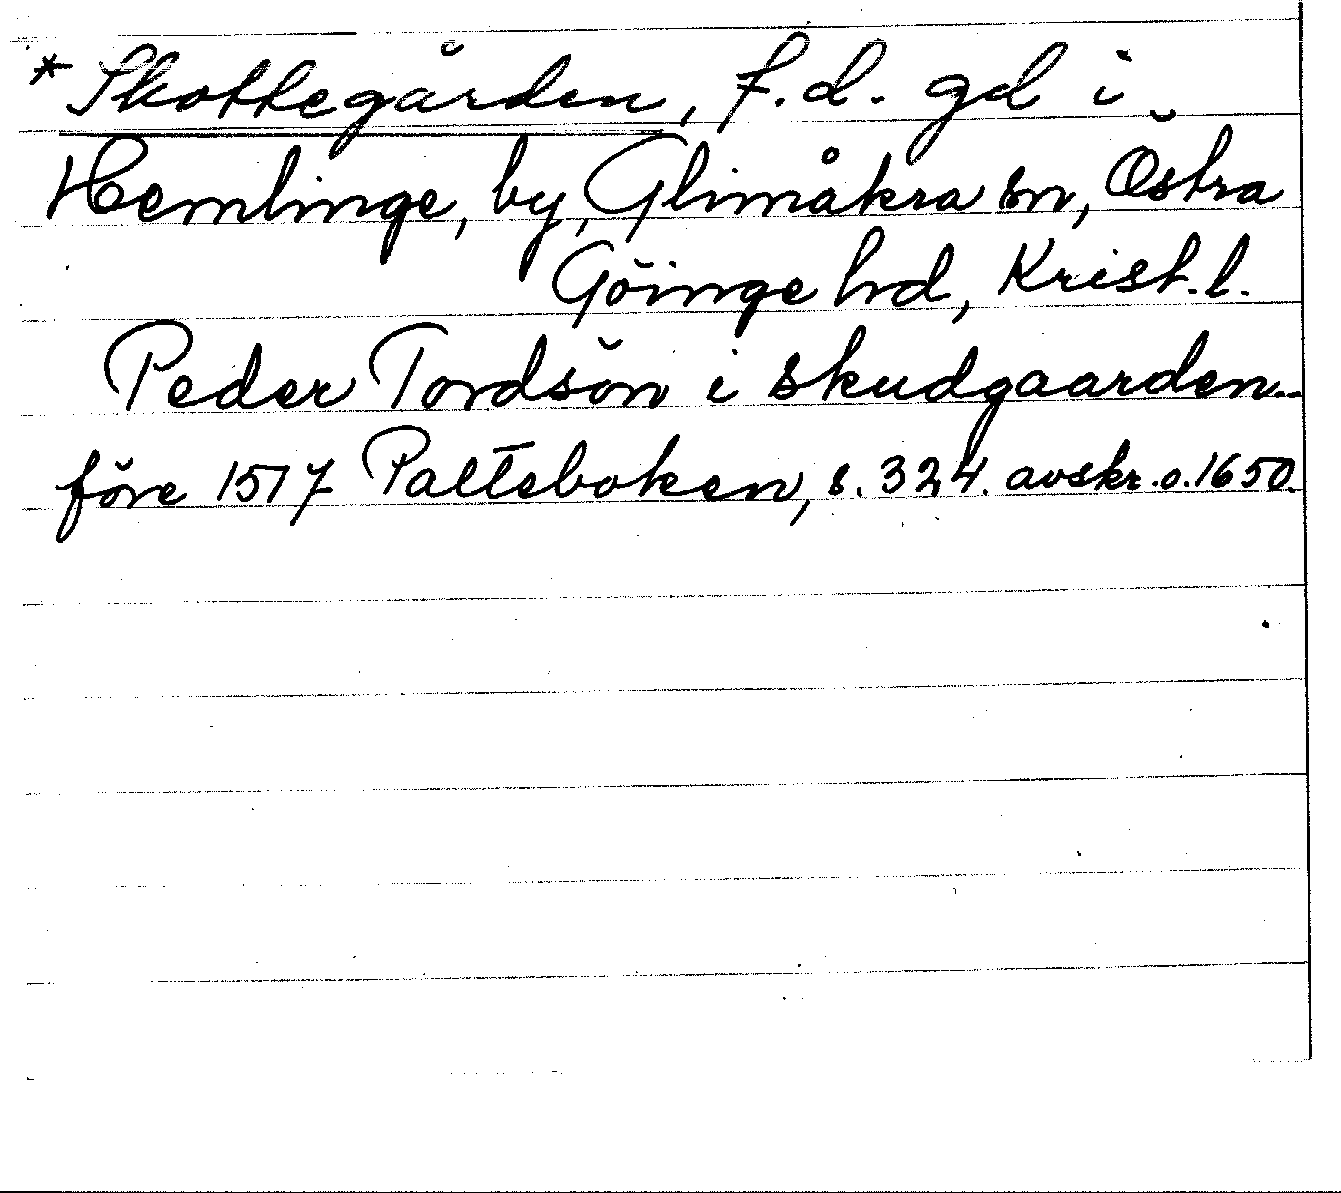 *Skottegården, f.d. gd i
Hemlinge, by, Glimåkra sn, Östra
Göinge hd, Krist. l.
Peder Tordsön i skudgaarden
före 1517 Palteboken, s. 324. avskr. o. 1650.